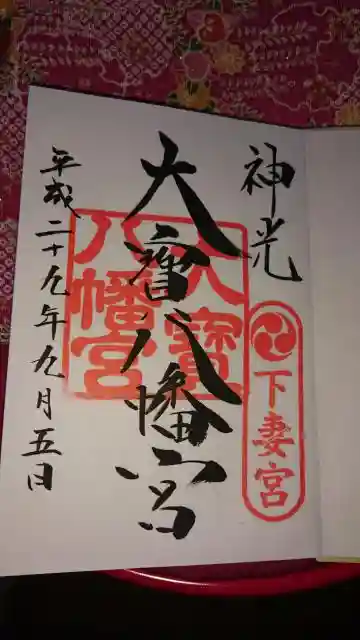 神光
下妻宮
大寳八幡宮
大寳
八幡宮
平成二十九年九月五日